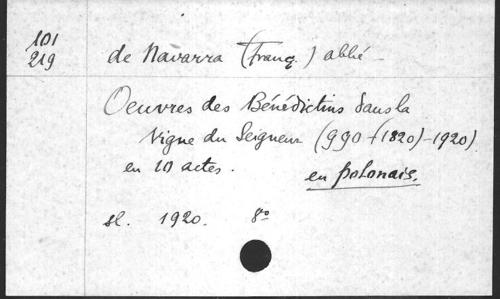 101
219
de Navarra (Franç.) abbé
Oeuvres des Bénédictins dans la
Vigne du Seigneur (990-(1820)-1920)
en 10 actes.
en polonais.
sl. 1920. 8º